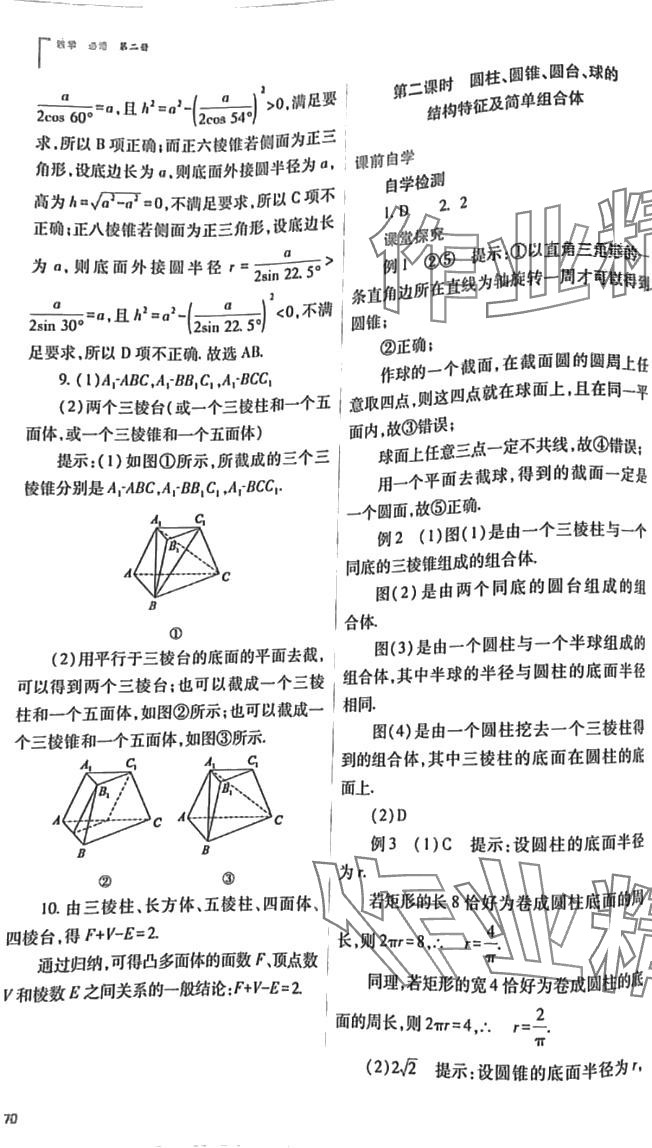 数学 必修 第二册
$\frac{a}{2\cos 60°}=a$,且 $h^2=a^2-\left(\frac{a}{2\cos 54°}\right)^2>0$,满足要
求,所以 B 项正确;而正六棱锥若侧面为正三
角形,设底边长为 a,则底面外接圆半径为 a,
高为 $h=\sqrt{a^2-a^2}=0$,不满足要求,所以 C 项不
正确;正八棱锥若侧面为正三角形,设底边长
为 a,则底面外接圆半径 $r=\frac{a}{2\sin 22.5°}>$
$\frac{a}{2\sin 30°}=a$,且 $h^2=a^2-\left(\frac{a}{2\sin 22.5°}\right)^2<0$,不满
足要求,所以 D 项不正确. 故选 AB.
9. (1)A₁-ABC,A₁-BB₁C₁,A₁-BCC₁
(2)两个三棱台(或一个三棱柱和一个五
面体,或一个三棱锥和一个五面体)
提示:(1)如图①所示,所截成的三个三
棱锥分别是 A₁-ABC,A₁-BB₁C₁,A₁-BCC₁.
A₁ C₁
B₁
A C
B
①
(2)用平行于三棱台的底面的平面去截,
可以得到两个三棱台;也可以截成一个三棱
柱和一个五面体,如图②所示;也可以截成一
个三棱锥和一个五面体,如图③所示.
A₁ C₁ A₁ C₁
B₁ B₁
A C A C
B B
② ③
10. 由三棱柱、长方体、五棱柱、四面体、
四棱台,得 F+V-E=2.
通过归纳,可得凸多面体的面数 F、顶点数
V 和棱数 E 之间关系的一般结论:F+V-E=2.
70
第二课时 圆柱、圆锥、圆台、球的
结构特征及简单组合体
课前自学
自学检测
1. D 2. 2
课堂探究
例 1 ②⑤ 提示:①以直角三角形的一
条直角边所在直线为轴旋转一周才可以得到
圆锥;
②正确;
作球的一个截面,在截面圆的圆周上任
意取四点,则这四点就在球面上,且在同一平
面内,故③错误;
球面上任意三点一定不共线,故④错误;
用一个平面去截球,得到的截面一定是
一个圆面,故⑤正确.
例 2 (1)图(1)是由一个三棱柱与一个
同底的三棱锥组成的组合体.
图(2)是由两个同底的圆台组成的组
合体.
图(3)是由一个圆柱与一个半球组成的
组合体,其中半球的半径与圆柱的底面半径
相同.
图(4)是由一个圆柱挖去一个三棱柱得
到的组合体,其中三棱柱的底面在圆柱的底
面上.
(2)D
例 3 (1)C 提示:设圆柱的底面半径
为 r.
若矩形的长 8 恰好为卷成圆柱底面的周
长,则 2πr=8,∴ $r=\frac{4}{π}$.
同理,若矩形的宽 4 恰好为卷成圆柱的底
面的周长,则 2πr=4,∴ $r=\frac{2}{π}$.
(2)$2\sqrt{2}$ 提示:设圆锥的底面半径为 r,
作业精
作业精